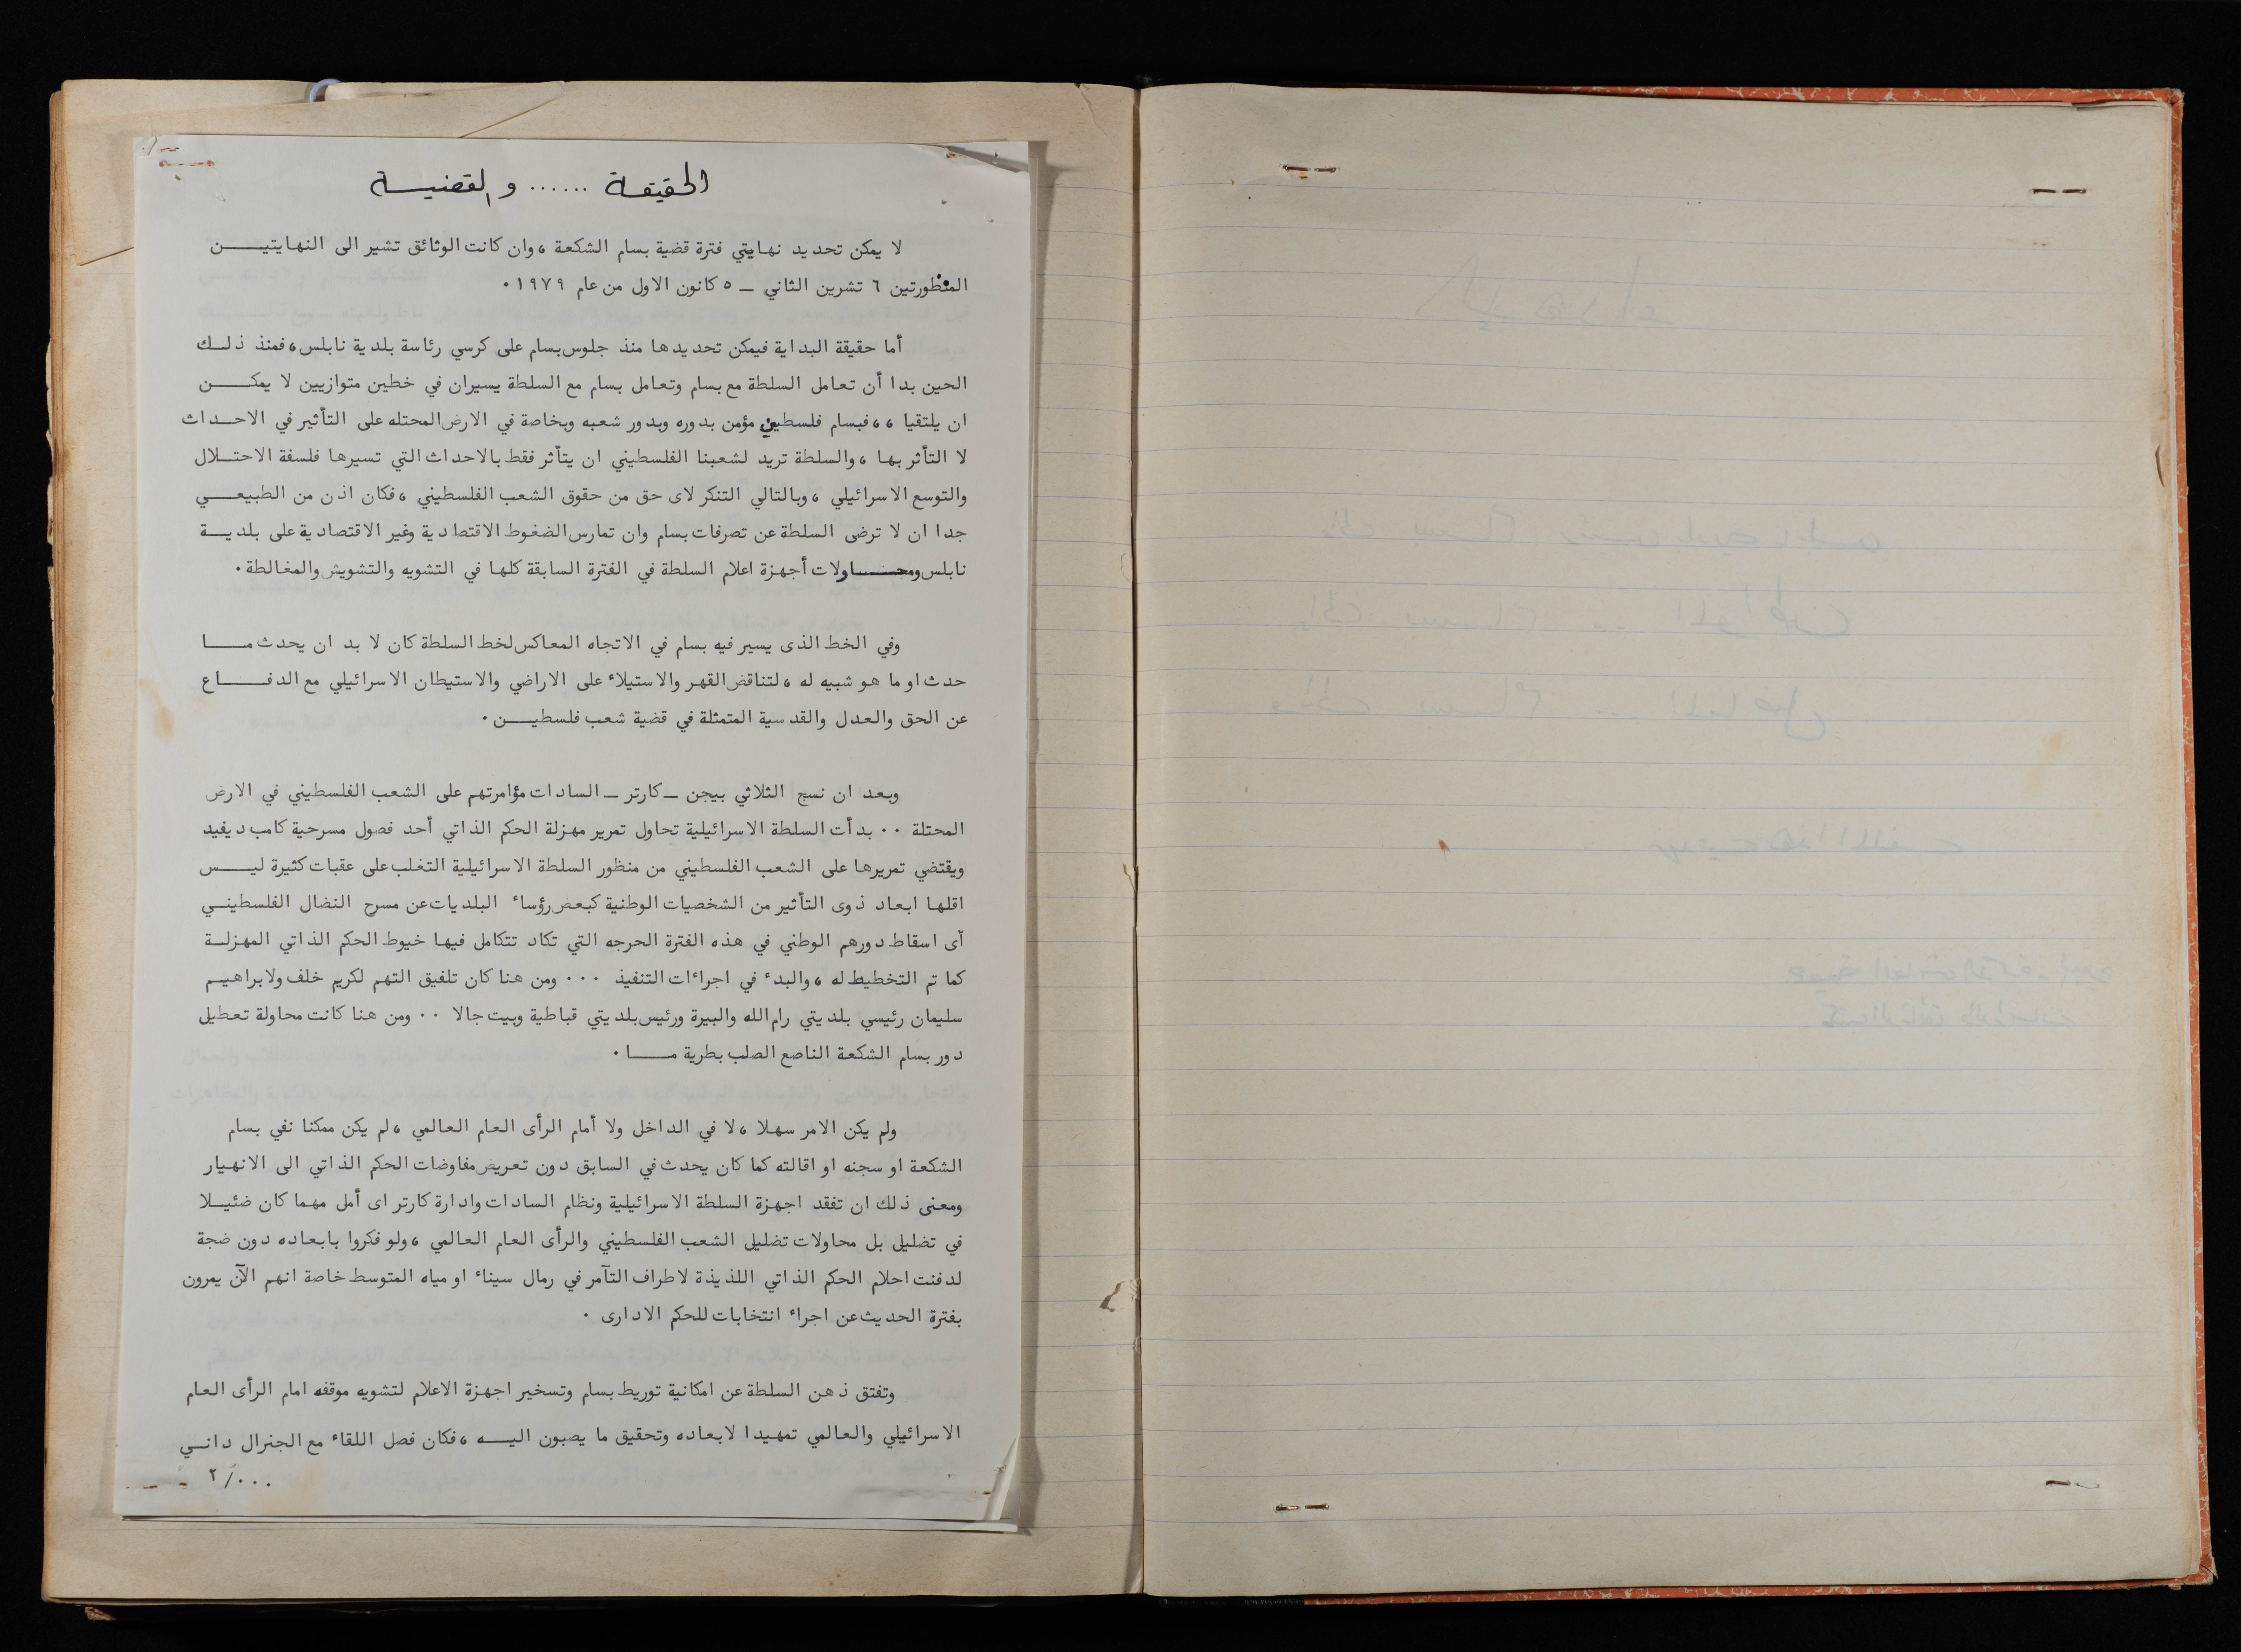 الحقيقة ...... والقضيــة
لا يمكن تحديد نهايتي فترة قضية بسام الشكعة ، وان كانت الوثائق تشير الى النهايتيــــن
المنظورتين ٦ تشرين الثاني ــ ٥ كانون الاول من عام ١٩٧٩ ٠
أما حقيقة البداية فيمكن تحديدها منذ جلوس بسام على كرسي رئاسة بلدية نابلس ، فمنذ ذلــك
الحين بدا أن تعامل السلطة مع بسام وتعامل بسام مع السلطة يسيران في خطين متوازيين لا يمكــــن
ان يلتقيا ، ، فبسام فلسطيني مؤمن بدوره وبدور شعبه وبخاصة في الارض المحتله على التأثير في الاحــداث
لا التأثر بها ، والسلطة تريد لشعبنا الفلسطيني ان يتأثر فقط بالاحداث التي تسيرها فلسفة الاحتــلال
والتوسع الاسرائيلي ، وبالتالي التنكر لاى حق من حقوق الشعب الفلسطيني ، فكان اذن من الطبيعـــي
جدا ان لا ترضى السلطة عن تصرفات بسام وان تمارس الضغوط الاقتصادية وغير الاقتصادية على بلديــة
نابلس ومحــــاولات أجهزة اعلام السلطة في الفترة السابقة كلها في التشويه والتشويش والمغالطة ٠
وفي الخط الذى يسير فيه بسام في الاتجاه المعاكس لخط السلطة كان لا بد ان يحدث مــــا
حدث او ما هو شبيه له ، لتناقض القهر والاستيلاء على الاراضي والاستيطان الاسرائيلي مع الدفــــاع
عن الحق والعدل والقدسية المتمثلة في قضية شعب فلسطيـــن ٠
وبعد ان نسج الثلاثي بيجن ــ كارتر ــ السادات مؤامرتهم على الشعب الفلسطيني في الارض
المحتلة ٠٠ بدأت السلطة الاسرائيلية تحاول تمرير مهزلة الحكم الذاتي أحد فصول مسرحية كامب ديفيد
ويقتضي تمريرها على الشعب الفلسطيني من منظور السلطة الاسرائيلية التغلب على عقبات كثيرة ليـــس
اقلها ابعاد ذوى التأثير من الشخصيات الوطنية كبعض رؤساء البلديات عن مسرح النضال الفلسطينــي
أى اسقاط دورهم الوطني في هذه الفترة الحرجه التي تكاد تتكامل فيها خيوط الحكم الذاتي المهزلــة
كما تم التخطيط له ، والبدء في اجراءات التنفيذ ٠٠٠ ومن هنا كان تلفيق التهم لكريم خلف ولابراهيــم
سليمان رئيسي بلديتي رام الله والبيرة ورئيس بلديتي قباطية وبيت جالا ٠٠ ومن هنا كانت محاولة تعطيل
دور بسام الشكعة الناصع الصلب بطرية مــــا ٠
ولم يكن الامر سهلا ، لا في الداخل ولا أمام الرأى العام العالمي ، لم يكن ممكنا نفي بسام
الشكعة او سجنه او اقالته كما كان يحدث في السابق دون تعريض مفاوضات الحكم الذاتي الى الانهيار
ومعنى ذلك ان تفقد اجهزة السلطة الاسرائيلية ونظام السادات وادارة كارتر اى أمل مهما كان ضئيــلا
في تضليل بل محاولات تضليل الشعب الفلسطيني والرأى العام العالمي ، ولو فكروا بابعاده دون ضجة
لدفنت احلام الحكم الذاتي اللذيذة لاطراف التآمر في رمال سيناء او مياه المتوسط خاصة انهم الآن يمرون
بفترة الحديث عن اجراء انتخابات للحكم الادارى ٠
وتفتق ذهن السلطة عن امكانية توريط بسام وتسخير اجهزة الاعلام لتشويه موقفه امام الرأى العام
الاسرائيلي والعالمي تمهيدا لابعاده وتحقيق ما يصبون اليـــه ، فكان فصل اللقاء مع الجنرال دانــي
٢/٠٠٠